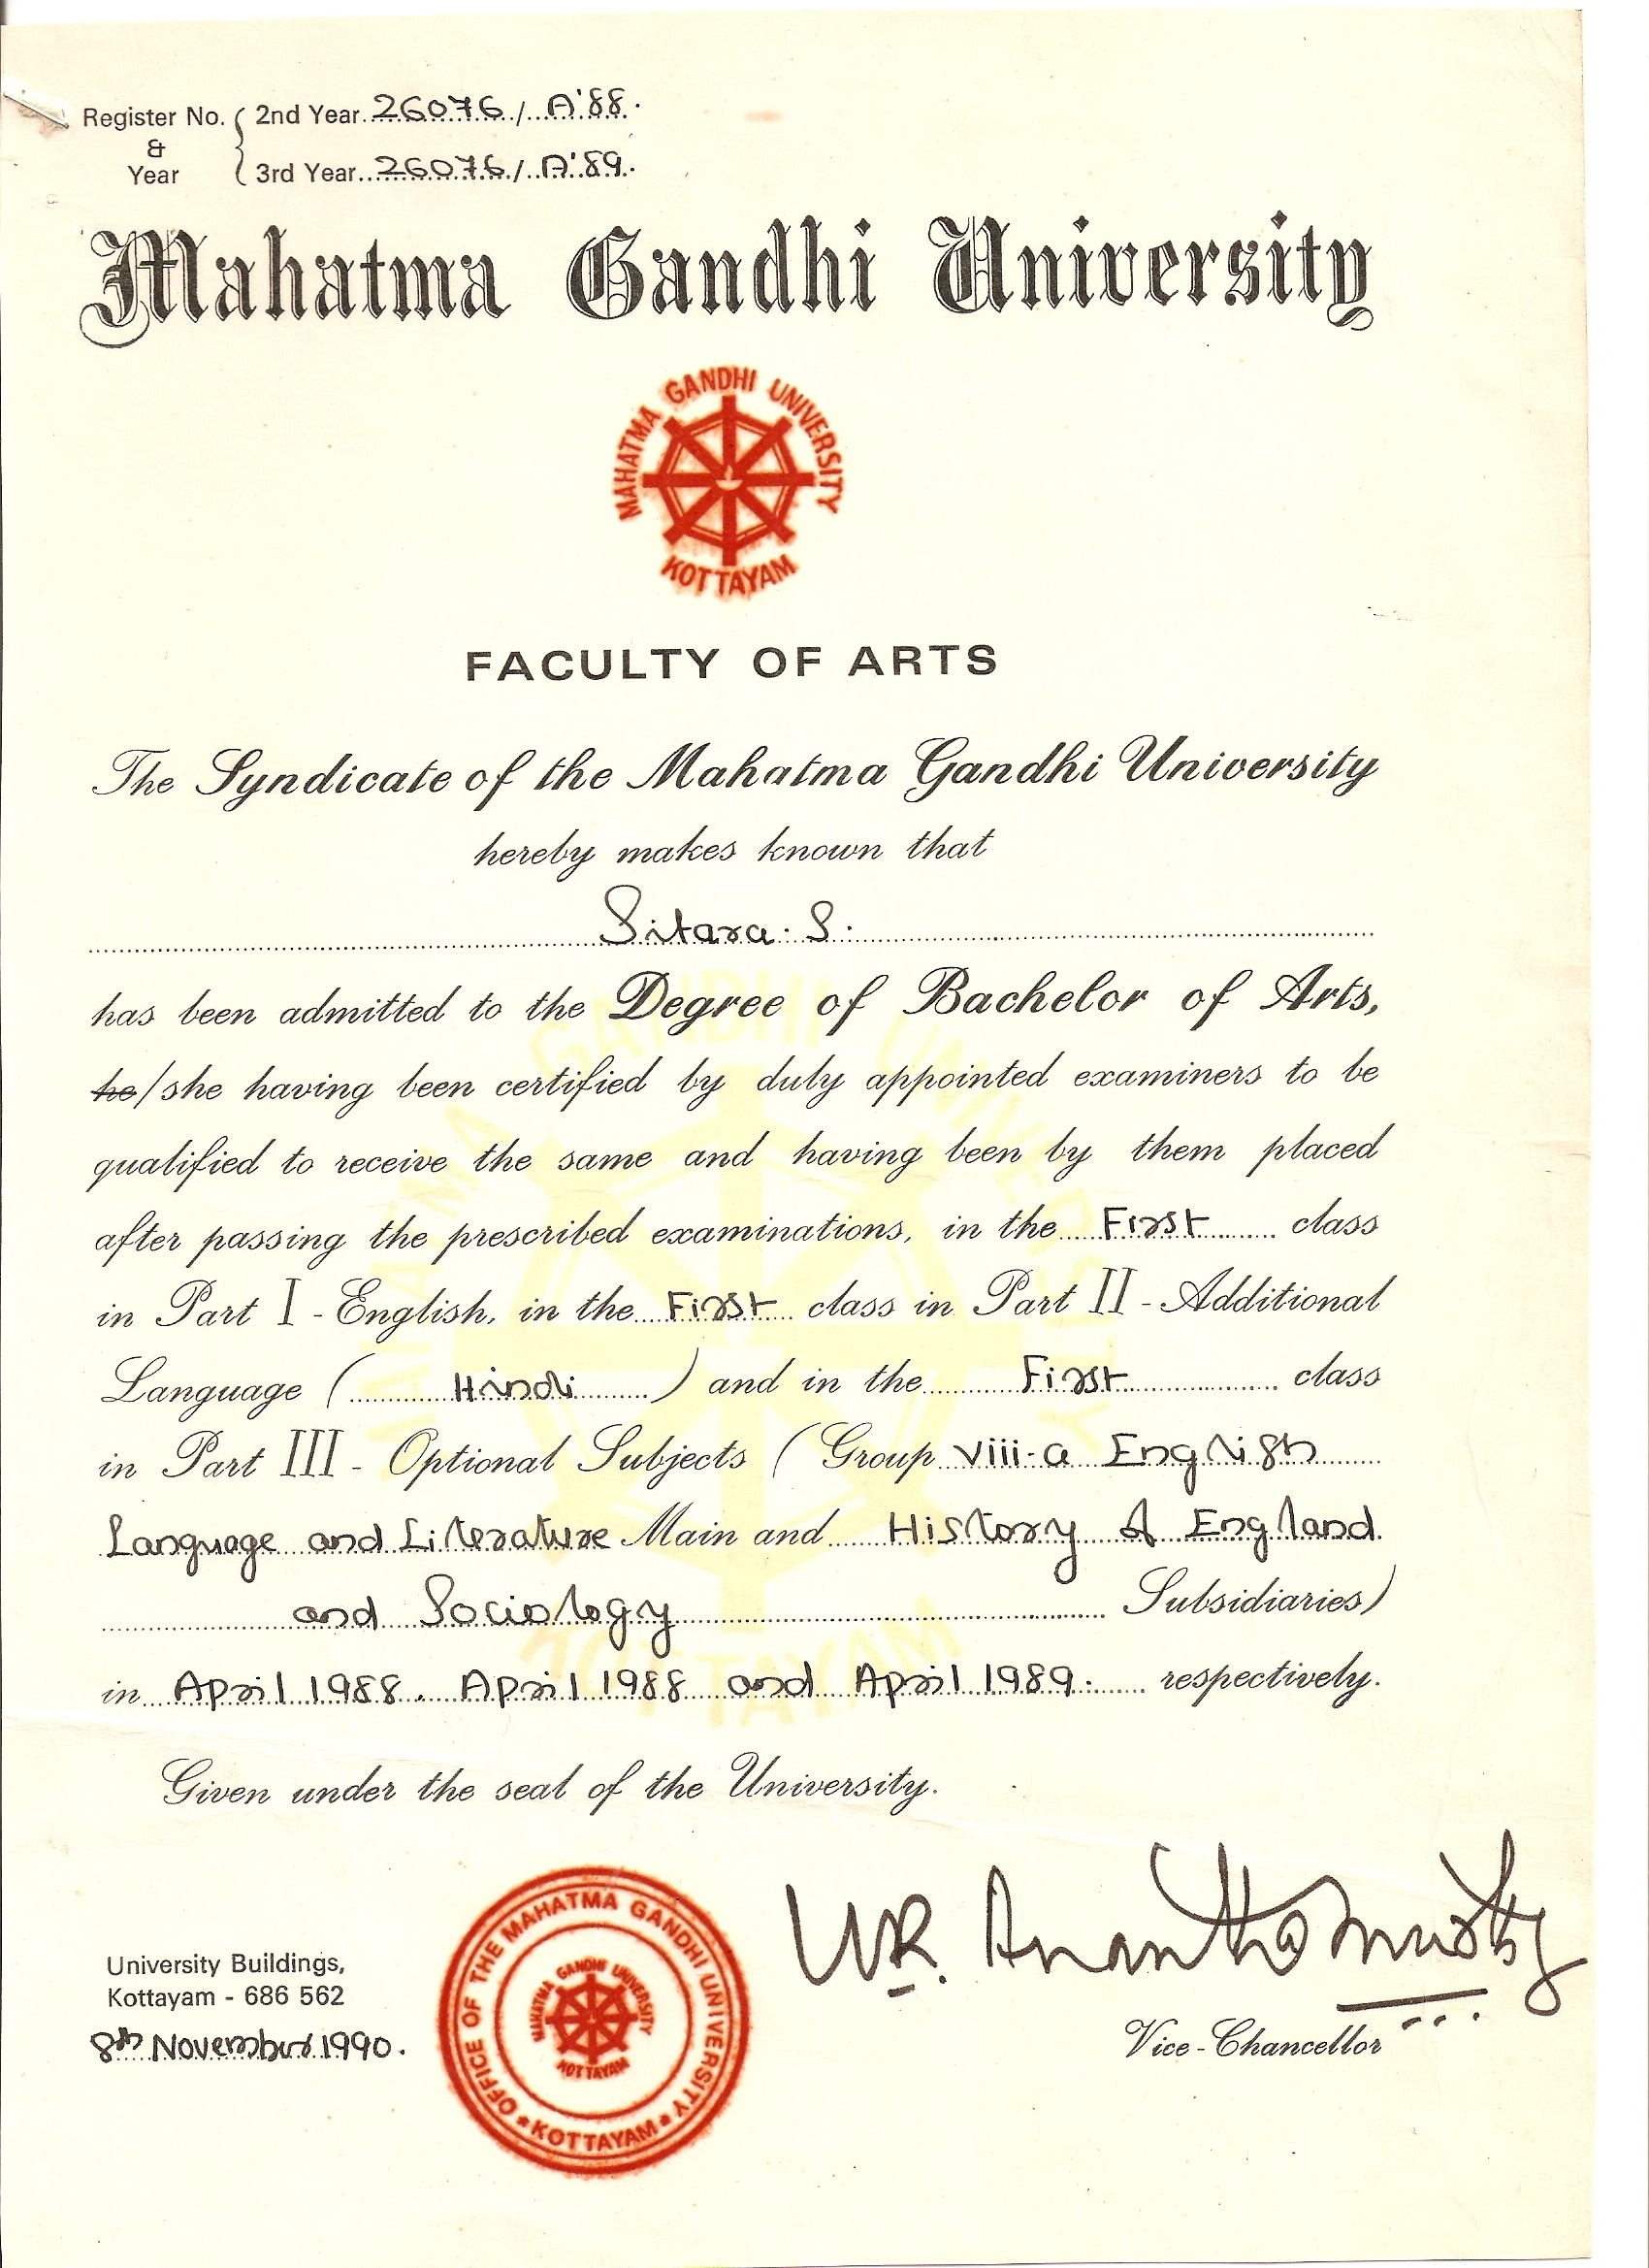 Register No. & Year { 2nd Year 26076 / A'88.
3rd Year 26076 / A'89.
Mahatma Gandhi University
MAHATMA GANDHI UNIVERSITY
KOTTAYAM
FACULTY OF ARTS
The Syndicate of the Mahatma Gandhi University
hereby makes known that
Sitara. S.
has been admitted to the Degree of Bachelor of Arts,
he/she having been certified by duly appointed examiners to be
qualified to receive the same and having been by them placed
after passing the prescribed examinations, in the First class
in Part I - English, in the First class in Part II - Additional
Language ( Hindi ) and in the First class
in Part III - Optional Subjects ( Group viii-a English
Language and Literature Main and History of England
and Sociology Subsidiaries)
in April 1988, April 1988 and April 1989. respectively.
Given under the seal of the University.
University Buildings,
Kottayam - 686 562
8th November 1990.
OFFICE OF THE MAHATMA GANDHI UNIVERSITY
* KOTTAYAM *
MAHATMA GANDHI UNIVERSITY
KOTTAYAM
U.R. Ananthamurthy
Vice-Chancellor